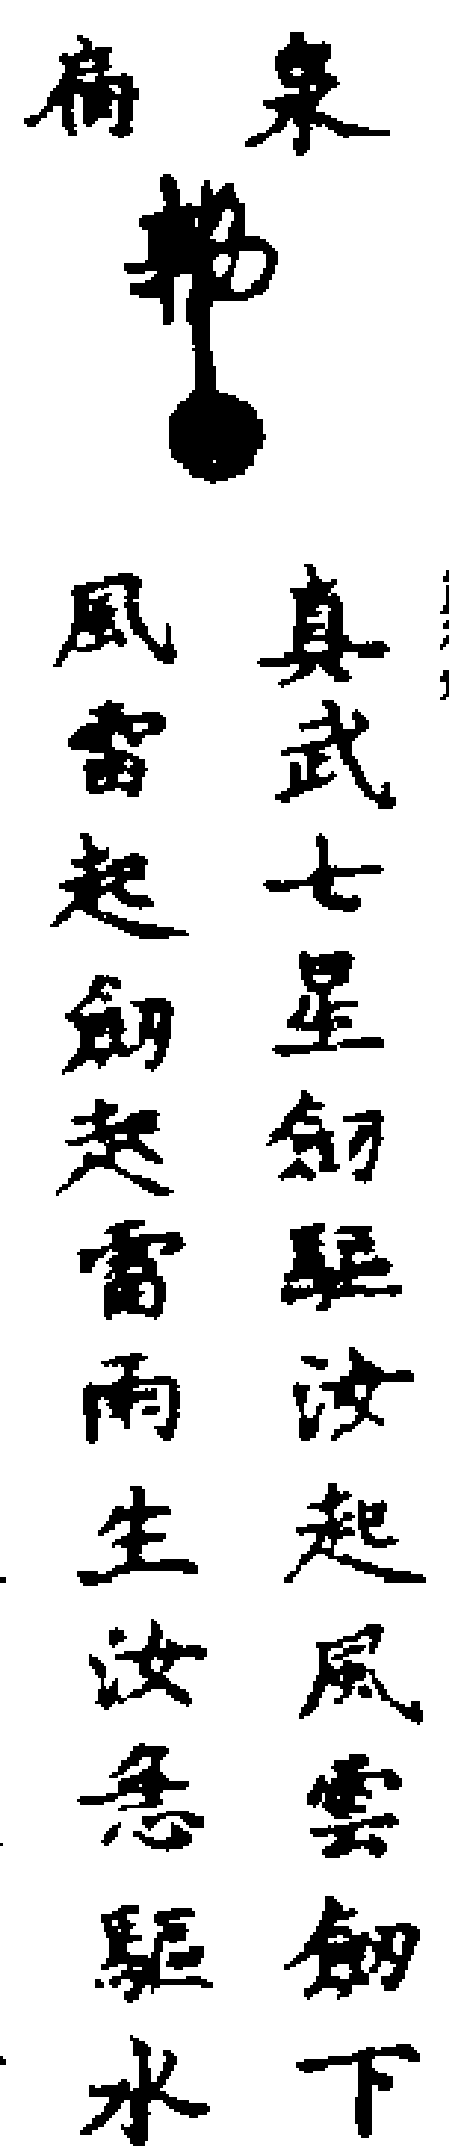 泉
真武七星劒駈汝起風雲劒下
風雷起劒起雷雨生汝急驅水